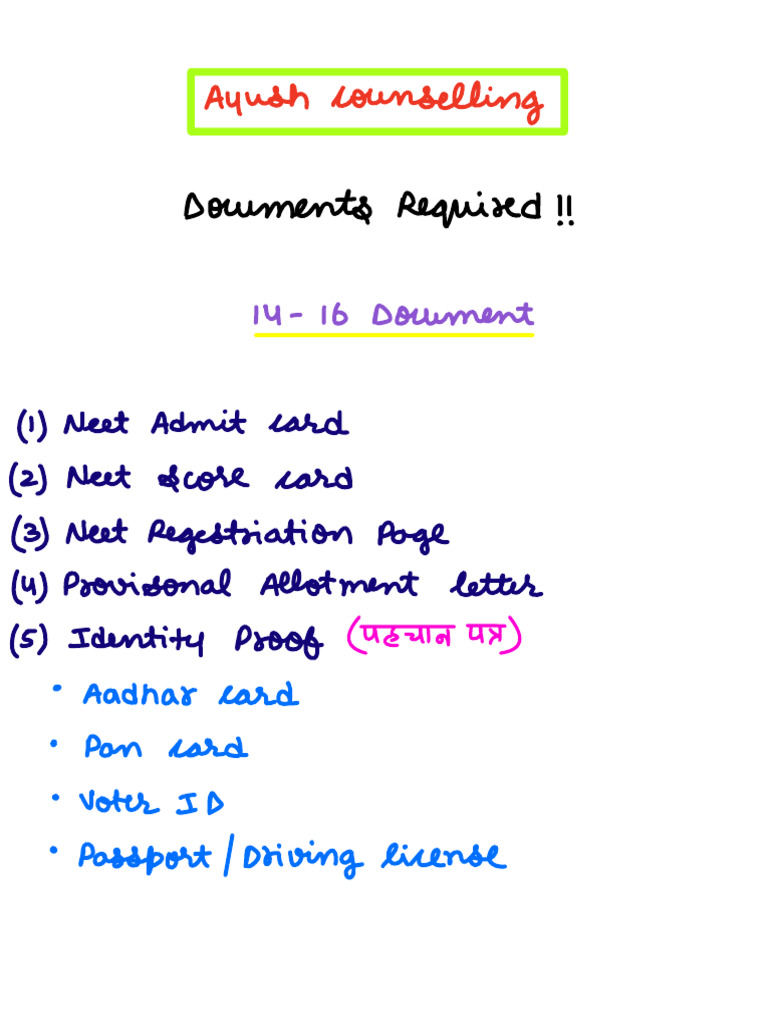 Ayush counselling
Documents Required !!
14-16 Document
(1) Neet Admit card
(2) Neet Score card
(3) Neet Regestriation Page
(4) Provisonal Allotment letter
(5) Identity Proof (पहचान पत्र)
• Aadhar card
• Pan card
• Voter ID
• Passport / Driving license